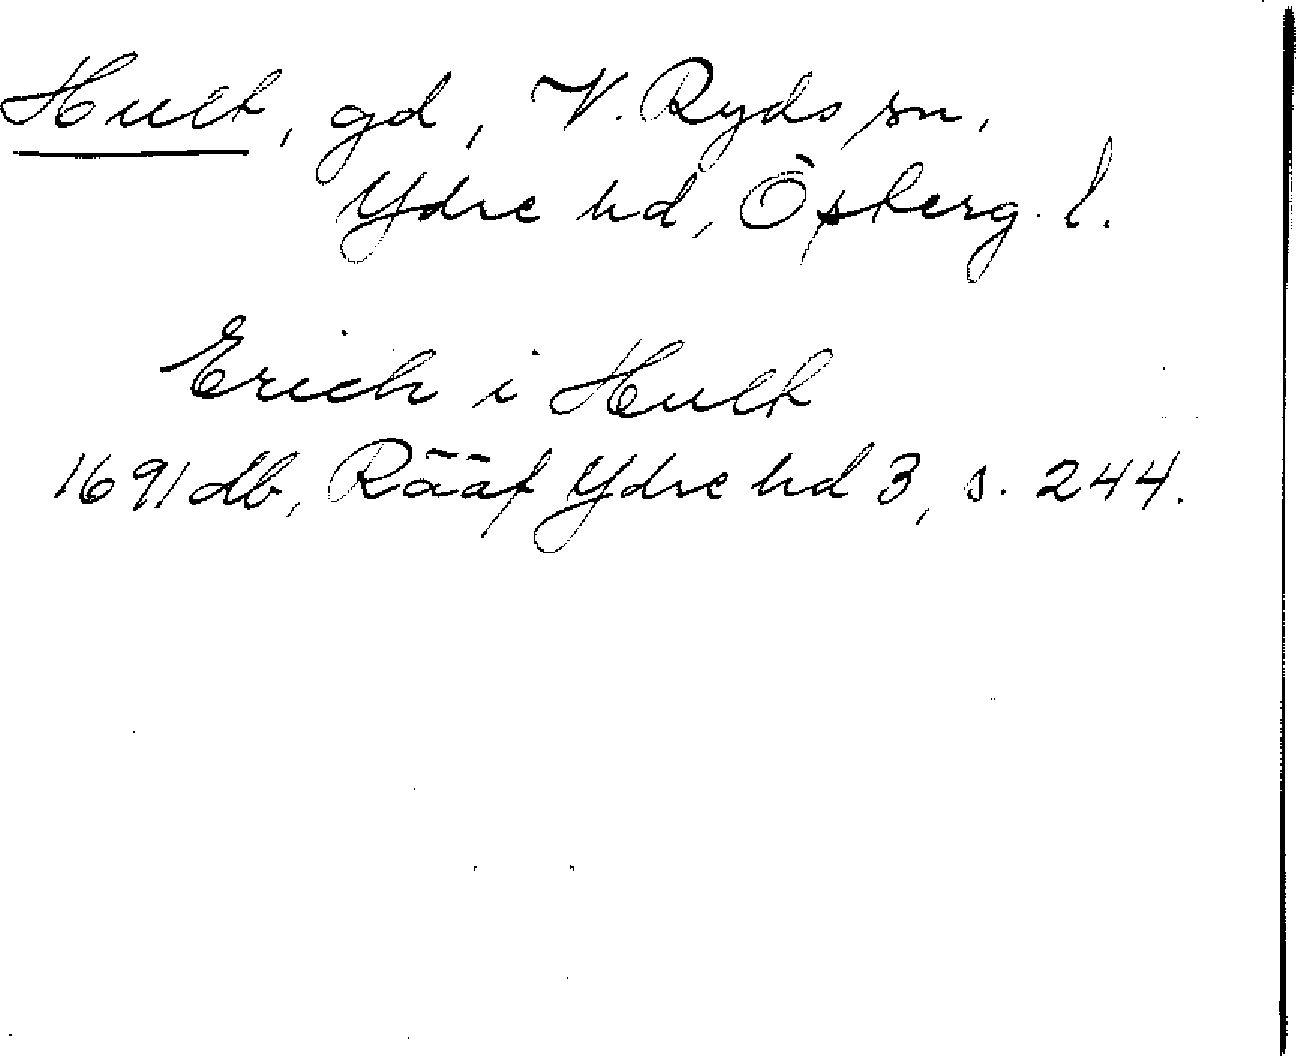 Hult, gd, V. Ryds sn,
Ydre hd, Östergl.
Erich i Hult
1691 db, Rääf Ydre hd 3, s. 244.